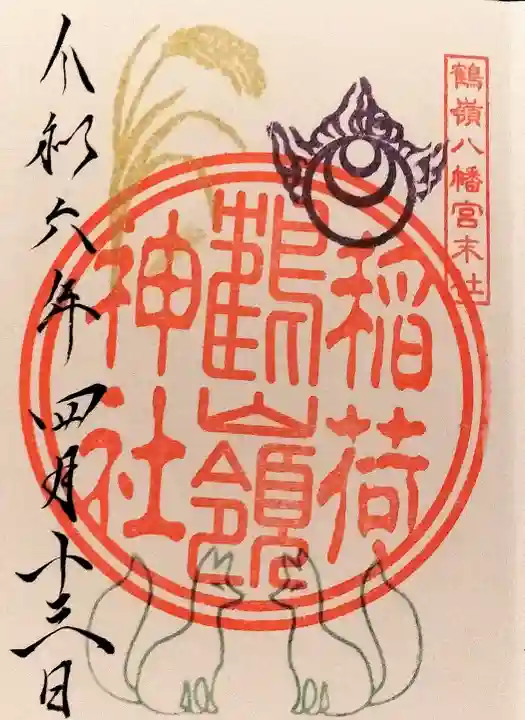 鶴嶺八幡宮末社
稲荷
鶴嶺
神社
令和六年四月十三日